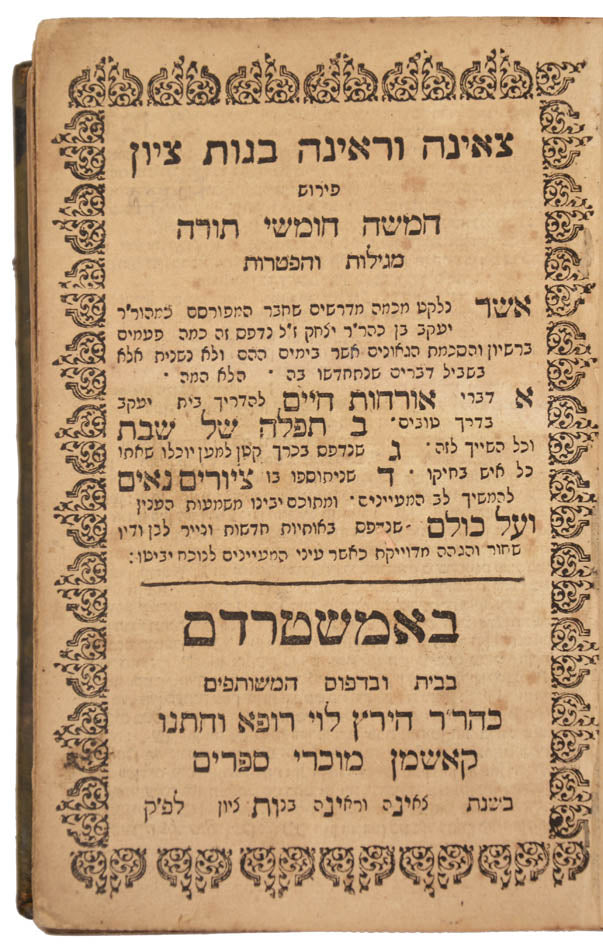 צאינה וראינה בנות ציון
פירוש
חמשה חומשי תורה
מגילות והפטרות
אשר נלקט מכמה מדרשים שחבר המפורסם כמהור"ר
יעקב בן כהר"ר יצחק ז"ל נדפס זה כמה פעמים
ברשיון והסכמת הגאונים אשר בימים ההם ולא נשנית אלא
בשביל דברים שנתחדשו בה · הלא המה ·
א דברי אורחות חיים להדריך בית יעקב
בדרך טובים · ב תפלה של שבת
וכל השייך לזה · ג שנדפס בכרך קטן למען יוכלו שאתו
כל איש בחיקו · ד שניתוספו בו ציורים נאים
להמשיך לב המעיינים · ומתוכם יבינו משמעות הענין
ועל כולם שנדפס באותיות חדשות ונייר לבן ודיו
שחור והגהה מדוייקת כאשר עיני המעיינים לנוכח יביטו :
באמשטרדם
בבית ובדפוס המשותפים
כהר"ר הירץ לוי רופא וחתנו
קאשמן מוכרי ספרים
בשנת צאינה וראינה בנות ציון לפ"ק